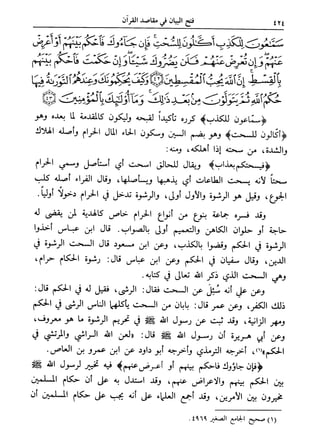 ٤٢٤ فتح البيان في مقاصد القرآن
سَمَّاعُونَ لِلْكَذِبِ أَكَّالُونَ لِلسُّحْتِ فَإِن جَاءُوكَ فَاحْكُم بَيْنَهُمْ أَوْ أَعْرِضْ
عَنْهُمْ وَإِن تُعْرِضْ عَنْهُمْ فَلَن يَضُرُّوكَ شَيْئًا وَإِنْ حَكَمْتَ فَاحْكُم بَيْنَهُم
بِالْقِسْطِ إِنَّ اللَّهَ يُحِبُّ الْمُقْسِطِينَ ﴿٤٢﴾ وَكَيْفَ يُحَكِّمُونَكَ وَعِندَهُمُ التَّوْرَاةُ فِيهَا
حُكْمُ اللَّهِ ثُمَّ يَتَوَلَّوْنَ مِن بَعْدِ ذَٰلِكَ وَمَا أُولَٰئِكَ بِالْمُؤْمِنِينَ ﴿٤٣﴾
﴿سماعون للكذب﴾ كرره تأكيداً لقبحه وليكون كالمقدمة لما بعده وهو
﴿أكالون للسحت﴾ وهو بضم السين وسكون الحاء المال الحرام وأصله الهلاك
والشدة، من سحته إذا أهلكه، ومنه:
﴿فيسحتكم بعذاب﴾ ويقال للحالق اسحت أي أستأصل وسمي الحرام
سحتاً لأنه يسحت الطاعات أي يذهبها ويستأصلها، وقال الفراء أصله كلب
الجوع، وقيل هو الرشوة والأول أولى، والرشوة تدخل في الحرام دخولاً أولياً.
وقد فسره جماعة بنوع من أنواع الحرام خاص كالهدية لمن يقضى له
حاجة أو حلوان الكاهن والتعميم أولى بالصواب. قال ابن عباس أخذوا
الرشوة في الحكم وقضوا بالكذب، وعن ابن مسعود قال السحت الرشوة في
الدين، وقال سفيان في الحكم وعن ابن عباس قال: رشوة الحكام حرام،
وهي السحت الذي ذكر الله تعالى في كتابه.
وعن علي أنه سئل عن السحت فقال: الرشى، فقيل له في الحكم قال:
ذلك الكفر، وعن عمر قال: بابان من السحت يأكلهما الناس الرشى في الحكم
ومهر الزانية، وقد ثبت عن رسول الله ﷺ في تحريم الرشوة ما هو معروف،
وعن أبي هريرة أن رسول الله ﷺ قال: «لعن الله الراشي والمرتشي في
الحكم»(١)، أخرجه الترمذي وأخرجه أبو داود عن ابن عمرو بن العاص.
﴿فإن جاؤوك فاحكم بينهم أو أعرض عنهم﴾ فيه تخيير لرسول الله ﷺ
بين الحكم بينهم والاعراض عنهم، وقد استدل به على أن حكام المسلمين
مخيرون بين الأمرين، وقد أجمع العلماء على أنه يجب على حكام المسلمين أن
(١) صحيح الجامع الصغير ٤٩٦٩.